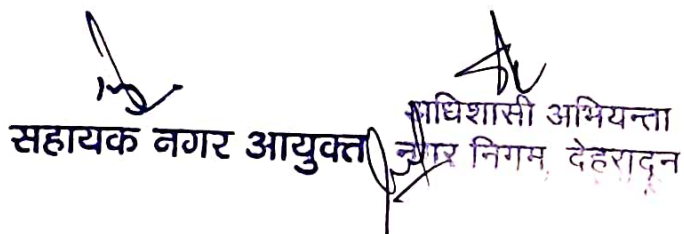 सहायक नगर आयुक्त
अधिशासी अभियन्ता
नगर निगम, देहरादून